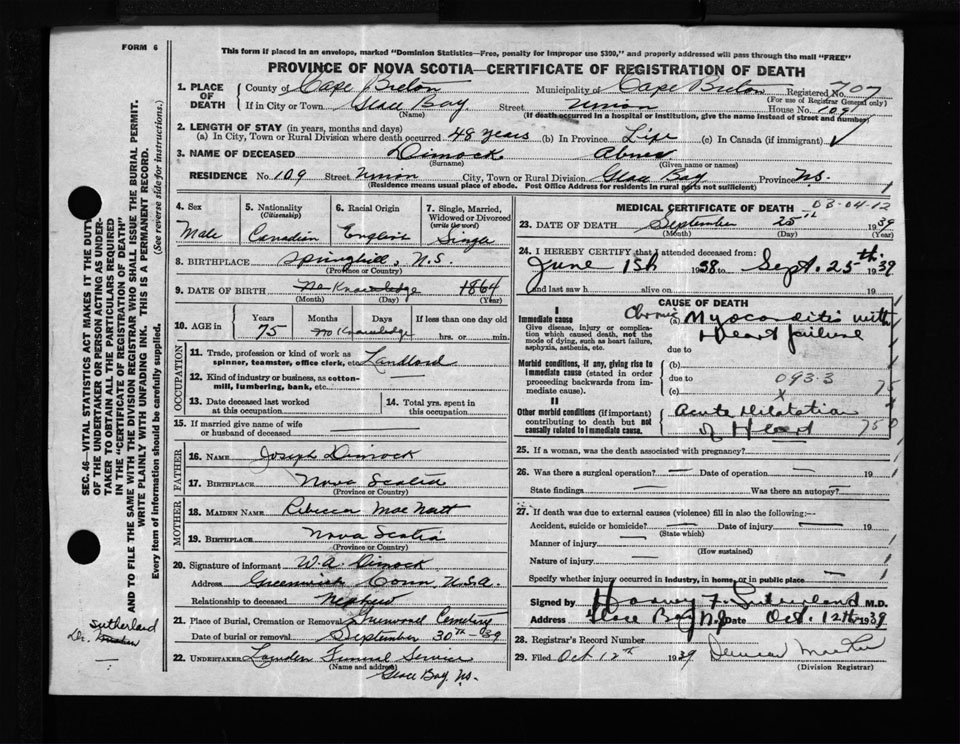 FORM 6
This form if placed in an envelope, marked "Dominion Statistics—Free, penalty for improper use $300," and properly addressed will pass through the mail "FREE"
PROVINCE OF NOVA SCOTIA—CERTIFICATE OF REGISTRATION OF DEATH
1. PLACE OF DEATH
County of Cape Breton Municipality of Cape Breton Registered No. 707
(For use of Registrar General only)
If in City or Town Glace Bay Street Union House No. 109
(Name) (If death occurred in a hospital or institution, give the name instead of street and number)
2. LENGTH OF STAY (in years, months and days)
(a) In City, Town or Rural Division where death occurred 48 years (b) In Province Life (c) In Canada (if immigrant)
3. NAME OF DECEASED Dimock Abner
(Surname) (Given name or names)
RESIDENCE No. 109 Street Union City, Town or Rural Division Glace Bay Province N.S.
(Residence means usual place of abode. Post Office Address for residents in rural parts not sufficient)
4. Sex
Male
5. Nationality
(Citizenship)
Canadian
6. Racial Origin
English
7. Single, Married, Widowed or Divorced
(write the word)
Single
8. BIRTHPLACE Springhill, N.S.
(Province or Country)
9. DATE OF BIRTH No Knowledge 1864
(Month) (Day) (Year)
10. AGE in
Years Months Days If less than one day old
75 No Knowledge hrs. or min.
OCCUPATION
11. Trade, profession or kind of work as
spinner, teamster, office clerk, etc. Landlord
12. Kind of industry or business, as cotton-
mill, lumbering, bank, etc.
13. Date deceased last worked
at this occupation
14. Total yrs. spent in
this occupation
15. If married give name of wife
or husband of deceased
FATHER
16. NAME Joseph Dimock
17. BIRTHPLACE Nova Scotia
(Province or Country)
MOTHER
18. MAIDEN NAME Rebecca Mac Natt
19. BIRTHPLACE Nova Scotia
(Province or Country)
20. Signature of informant W.A. Dimock
Address Greenwich Conn. U.S.A.
Relationship to deceased Nephew
21. Place of Burial, Cremation or Removal Greenwood Cemetery
Date of burial or removal September 30th 1939
22. UNDERTAKER Funeral Service
(Name and address)
Glace Bay N.S.
MEDICAL CERTIFICATE OF DEATH
03-04-12
23. DATE OF DEATH September 25th 1939
(Month) (Day) (Year)
24. I HEREBY CERTIFY that I attended deceased from:
June 1st 1938 to Sept. 25th 1939
and last saw h alive on 19
CAUSE OF DEATH
I
Immediate cause
Give disease, injury or complica-
tion which caused death, not the
mode of dying, such as heart failure,
asphyxia, asthenia, etc.
Chronic (a) Myocarditis with
Heart failure
due to
Morbid conditions, if any, giving rise to
immediate cause (stated in order
proceeding backwards from im-
mediate cause).
(b)
due to 093.3
(c) 75
II
Other morbid conditions (if important)
contributing to death but not
causally related to immediate cause.
Acute Dilatation
of Heart 750
25. If a woman, was the death associated with pregnancy?
26. Was there a surgical operation? Date of operation 19
State findings Was there an autopsy?
27. If death was due to external causes (violence) fill in also the following:—
Accident, suicide or homicide? Date of injury 19
(State which)
Manner of injury
(How sustained)
Nature of injury
Specify whether injury occurred in industry, in home, or in public place
Signed by Harvey F. Sutherland M.D.
Address Glace Bay N.S. Date Oct. 12th 1939
28. Registrar's Record Number
29. Filed Oct 12th 1939
(Division Registrar)
SEC. 46—VITAL STATISTICS ACT MAKES IT THE DUTY
OF THE UNDERTAKER OR PERSON ACTING AS UNDER-
TAKER TO OBTAIN ALL THE PARTICULARS REQUIRED
IN THE "CERTIFICATE OF REGISTRATION OF DEATH"
AND TO FILE THE SAME WITH THE DIVISION REGISTRAR WHO SHALL ISSUE THE BURIAL PERMIT.
WRITE PLAINLY WITH UNFADING INK. THIS IS A PERMANENT RECORD.
Every item of information should be carefully supplied. (See reverse side for instructions.)
Sutherland
Dr.